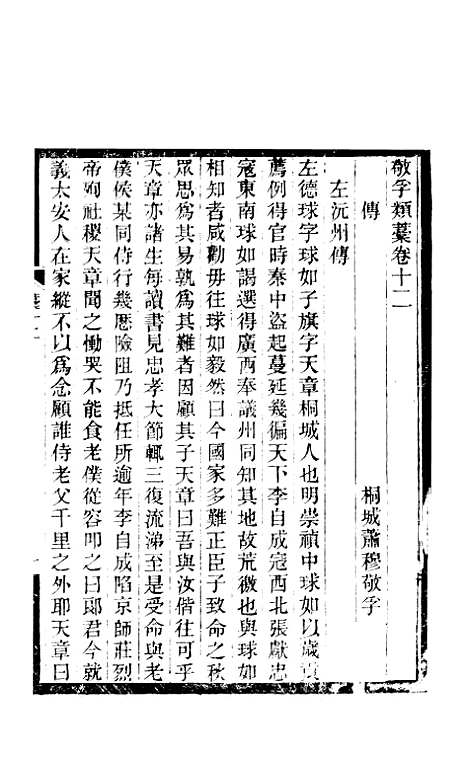 敬孚類藁卷十二
傳　桐城蕭穆敬孚
左沅州傳
左德球字球如子旗字天章桐城人也明崇禎中球如以歲貢
薦例得官時秦中盜起蔓延幾徧天下李自成寇西北張獻忠
寇東南球如謁選得廣西奉議州同知其地故荒徼也與球如
相知者咸勸毋往球如毅然曰今國家多難正臣子致命之秋
眾思爲其易孰爲其難者因顧其子天章曰吾與汝偕往可乎
天章亦諸生每讀書見忠孝大節輒三復流涕至是受命與老
僕候某同侍行幾歴險阻乃抵任所逾年李自成陷京師莊烈
帝殉社稷天章聞之慟哭不能食老僕從容叩之曰郞君今就
義太安人在家縱不以爲念顧誰侍老父千里之外耶天章曰